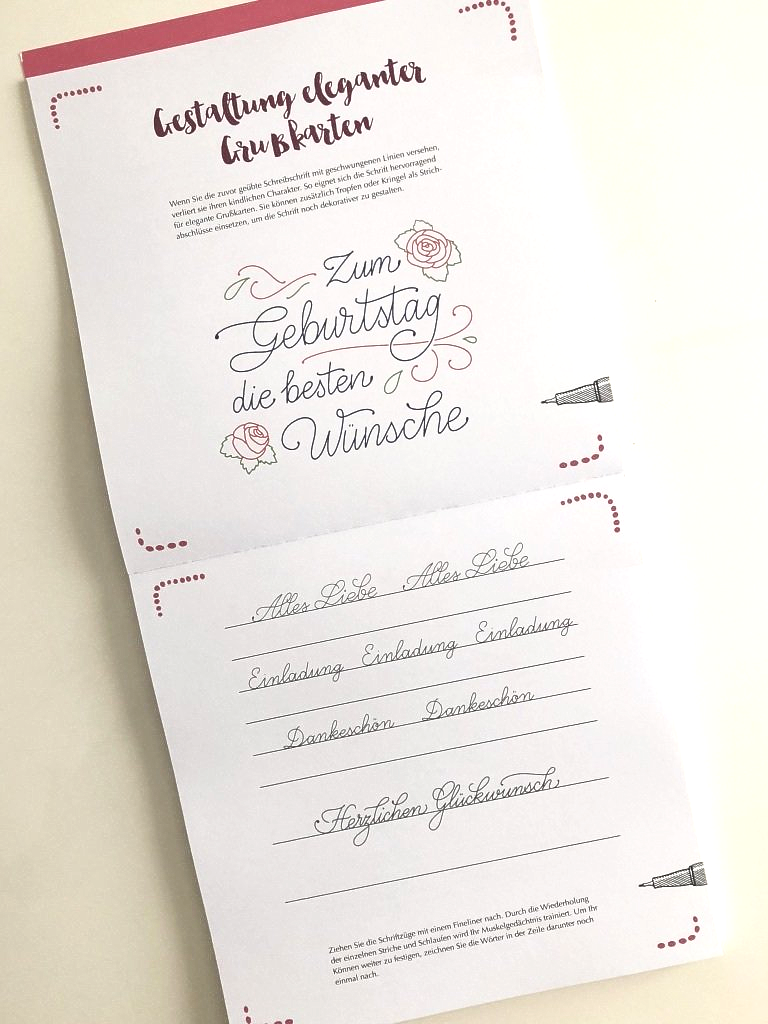 Gestaltung eleganter
Grußkarten
Wenn Sie die zuvor geübte Schreibschrift mit geschwungenen Linien versehen,
verliert sie ihren kindlichen Charakter. So eignet sich die Schrift hervorragend
für elegante Grußkarten. Sie können zusätzlich Tropfen oder Kringel als Strich-
abschlüsse einsetzen, um die Schrift noch dekorativer zu gestalten.
Zum
Geburtstag
die besten
Wünsche
Alles Liebe Alles Liebe
Einladung Einladung Einladung
Dankeschön Dankeschön
Herzlichen Glückwunsch
Ziehen Sie die Schriftzüge mit einem Fineliner nach. Durch die Wiederholung
der einzelnen Striche und Schlaufen wird Ihr Muskelgedächtnis trainiert. Um Ihr
Können weiter zu festigen, zeichnen Sie die Wörter in der Zeile darunter noch
einmal nach.